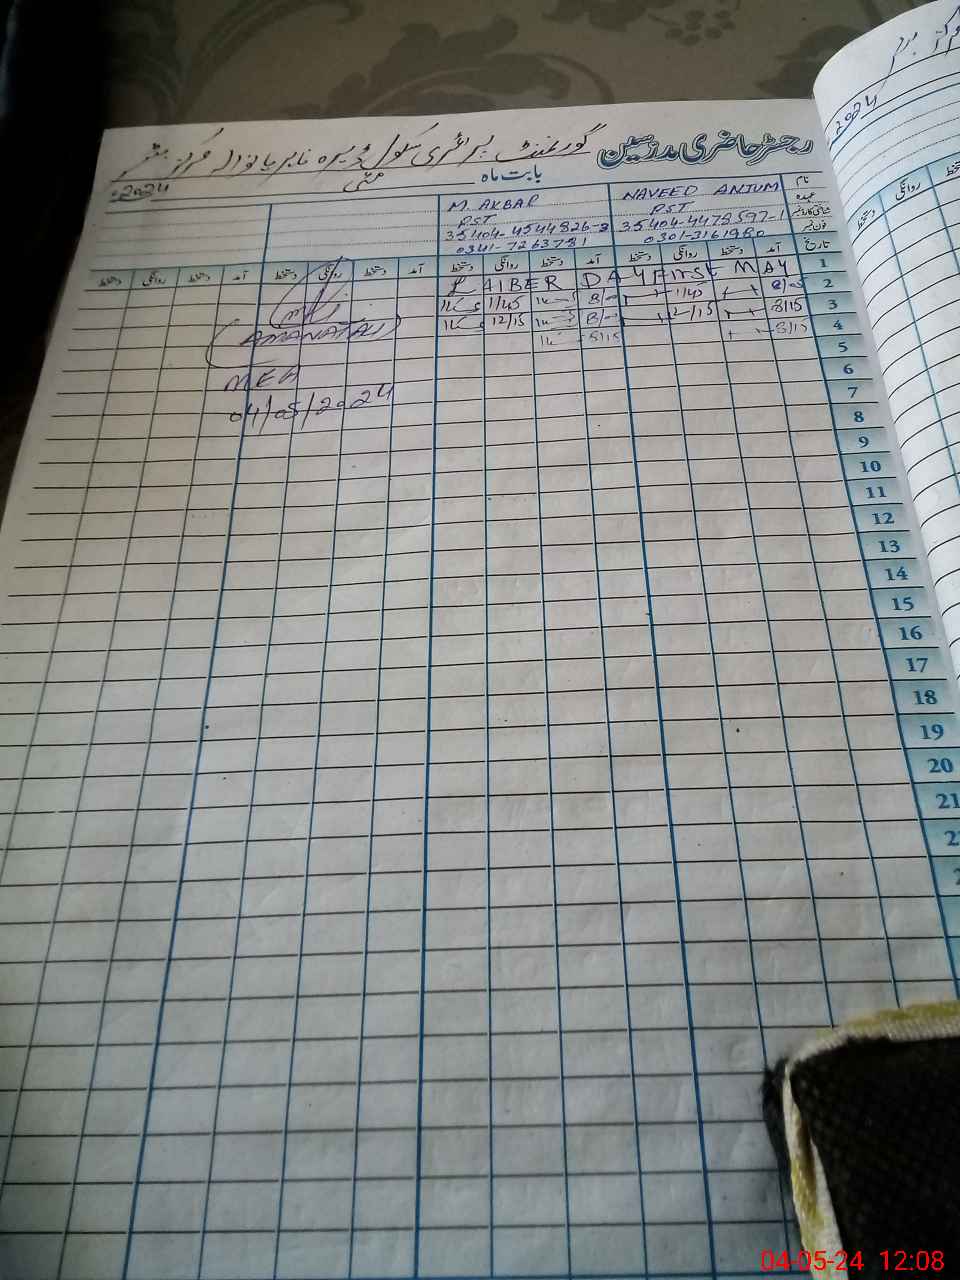 رجسٹر حاضری مدرسین گورنمنٹ پرائمری سکول ڈیرہ
بابت ماہ مئی 2024ء
نام NAVEED ANJUM M. AKBAR
عہدہ PST PST
شناختی کارڈ نمبر 35404-4478597-1 35404-4544826-3
فون نمبر 0301-3161980 0341-7263781
تاریخ آمد دستخط روانگی دستخط آمد دستخط روانگی دستخط آمد دستخط روانگی دستخط آمد دستخط روانگی دستخط
1 LAIBER DAY FIRST MAY
2 8/00 1/45 8/00 1/45
3 8/15 12/15 8/00 12/15
4 8/15 8/15
5
6
7
8
9
10
11
12
13
14
15
16
17
18
19
20
21
(AMANATALI)
MEA
04/05/2024
2024
روانگی
دستخط
04-05-24 12:08